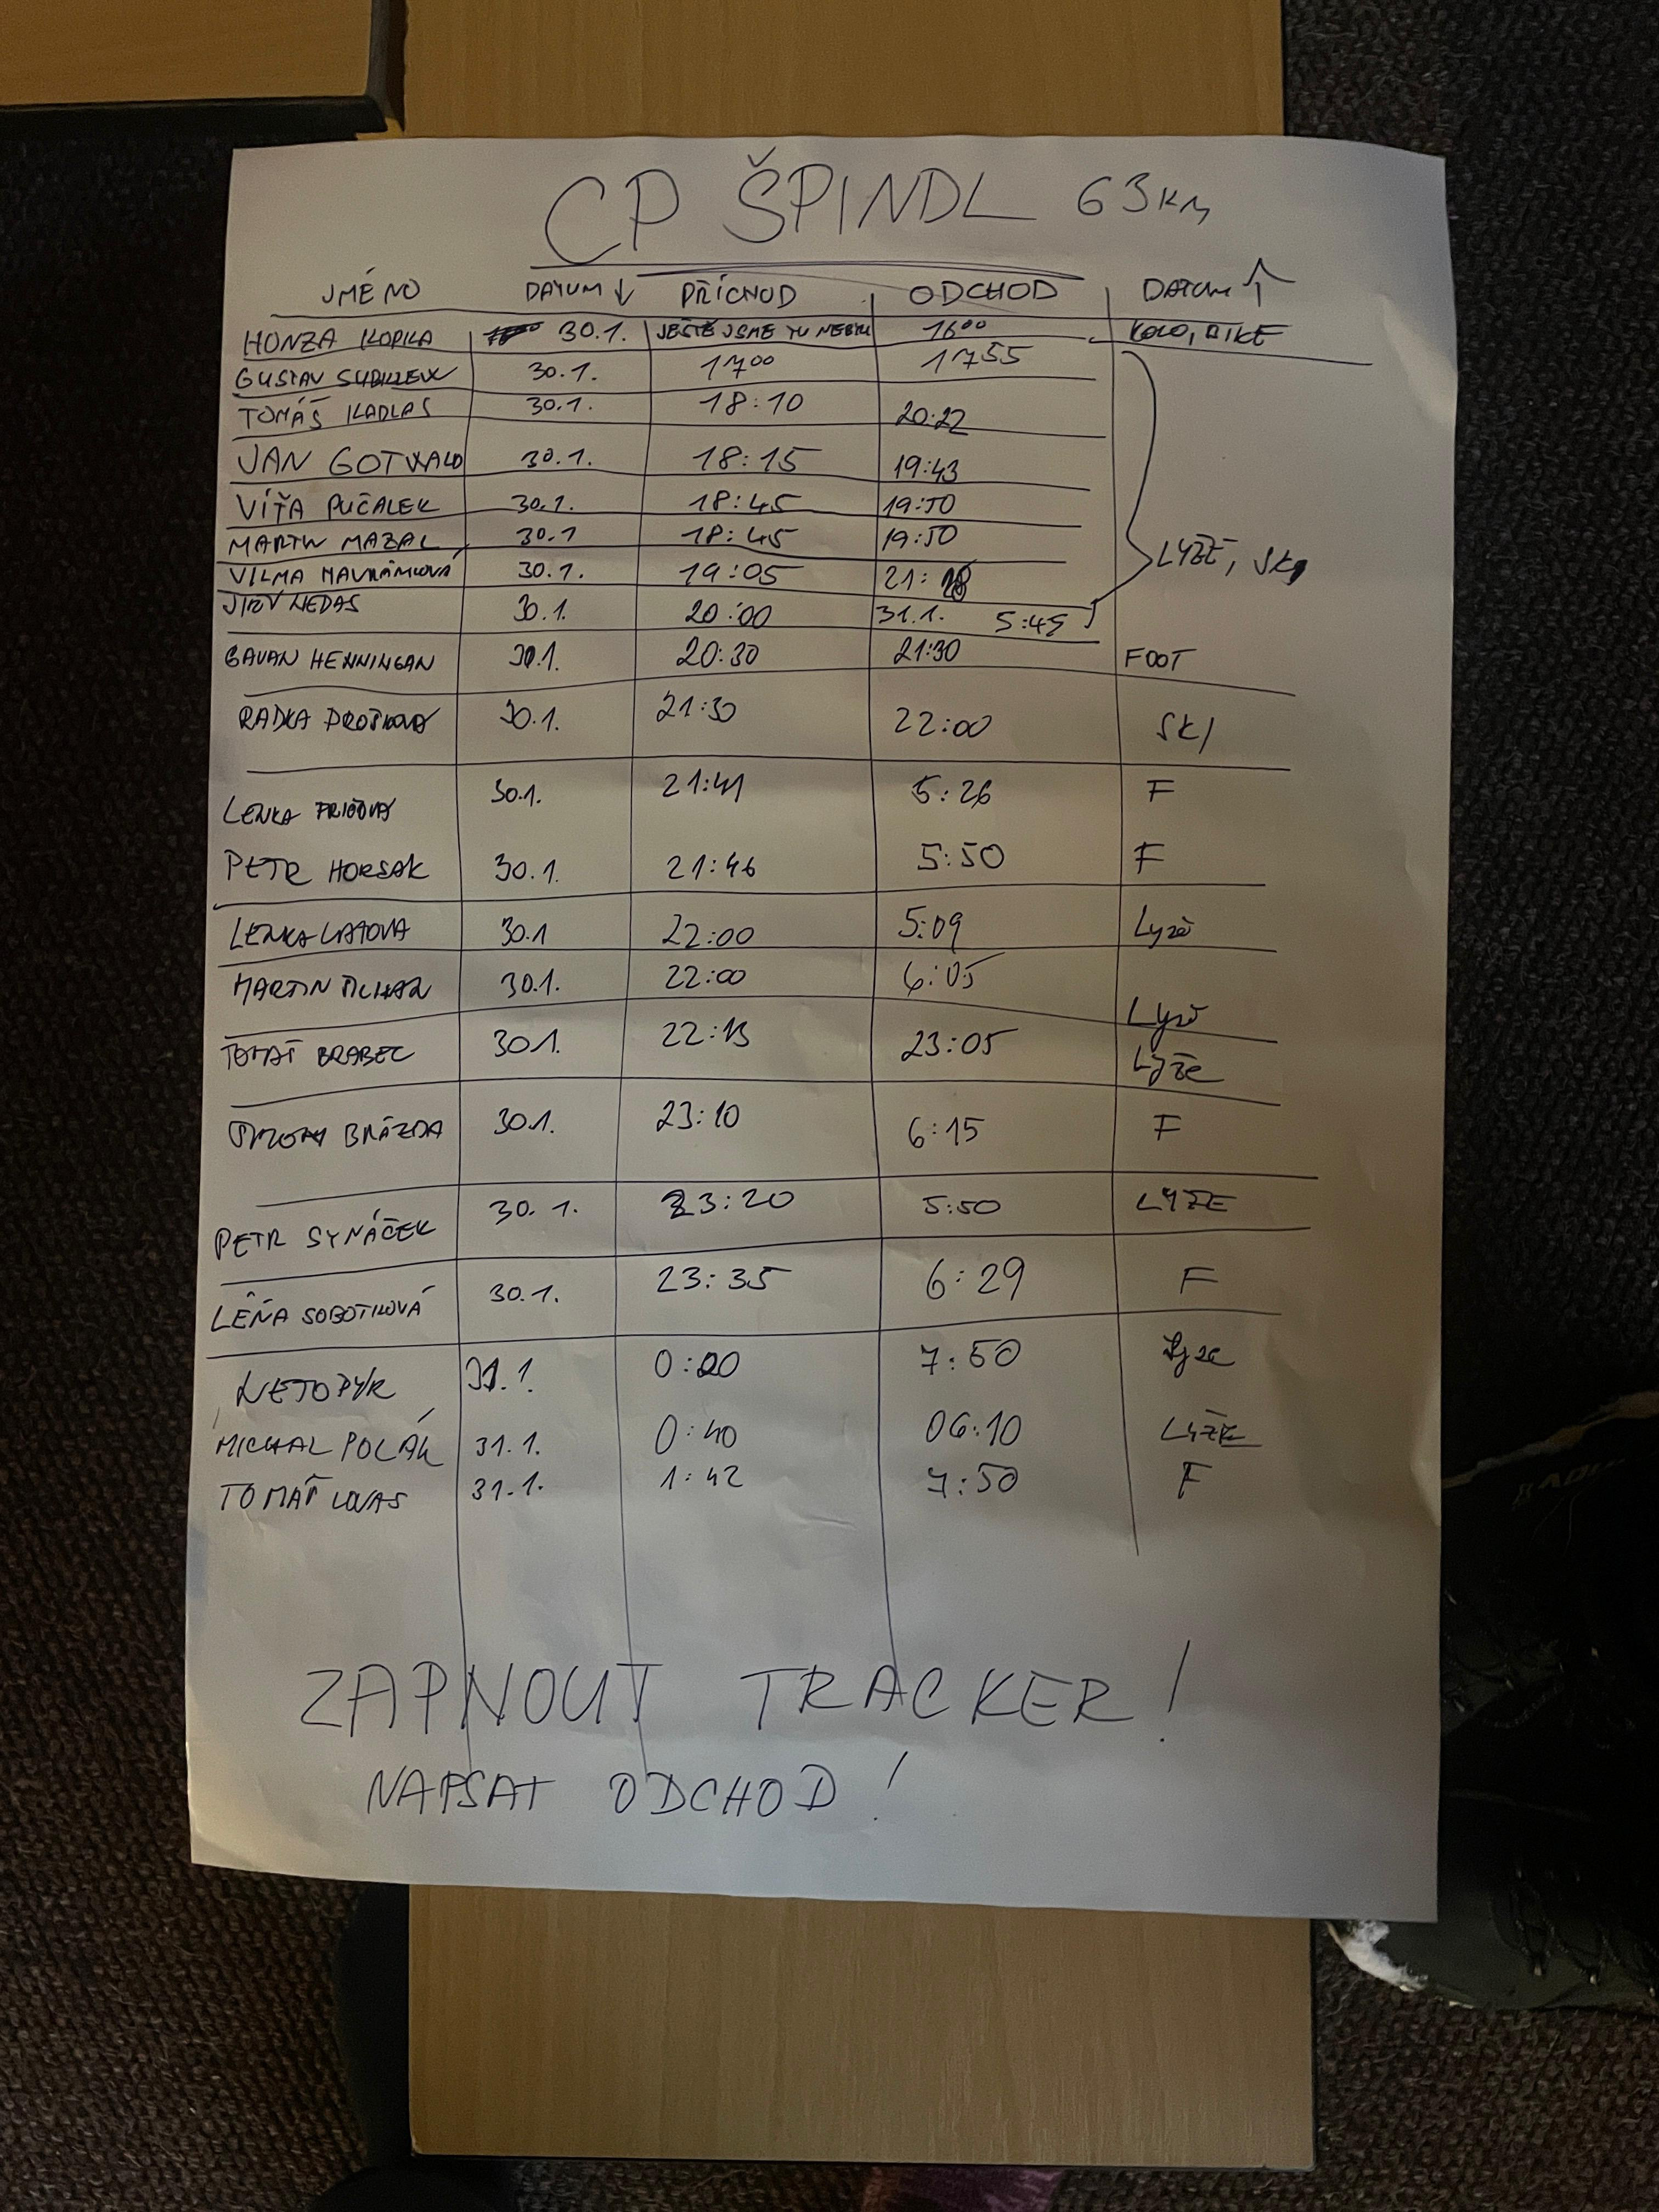 CP ŠPINDL 63 KM
JMÉNO DATUM ↓ PŘÍCHOD ODCHOD DATUM ↑
HONZA KOPKA 30.1. JEŠTĚ JSME TU NEBYLI 1600 KOLO, BIKE
GUSTAV 30.1. 1700 1755
TOMÁŠ KADLAS 30.1. 18:10 20:22
JAN GOTWALD 30.1. 18:15 19:43
VÍŤA PUČALEK 30.1. 18:45 19:50
MARTIN MAZAL 30.1 18:45 19:50
LYŽE, SKI
VILMA 30.1. 19:05 21:
NEDAS 30.1. 20:00 31.1. 5:45
GAVAN HENNINGAN 30.1. 20:30 21:30 FOOT
RADKA 30.1. 21:30 22:00 SKI
LENKA 30.1. 21:41 5:26 F
PETR HORSAK 30.1. 21:46 5:50 F
LENKA 30.1 22:00 5:09 Lyže
MARTIN 30.1. 22:00 6:05 Lyže
TOMAŠ BRABEC 30.1. 22:13 23:05 Lyže
BRÁZDA 30.1. 23:10 6:15 F
PETR SYNÁČEK 30.1. 23:20 5:50 LYŽE
LEŇA SOBOTKOVÁ 30.1. 23:35 6:29 F
NETOPYR 31.1. 0:20 7:50 Lyze
MICHAL POLÁK 31.1. 0:40 06:10 LYŽE
TOMÁŠ LOVAS 31.1. 1:42 7:50 F
ZAPNOUT TRACKER!
NAPSAT ODCHOD!